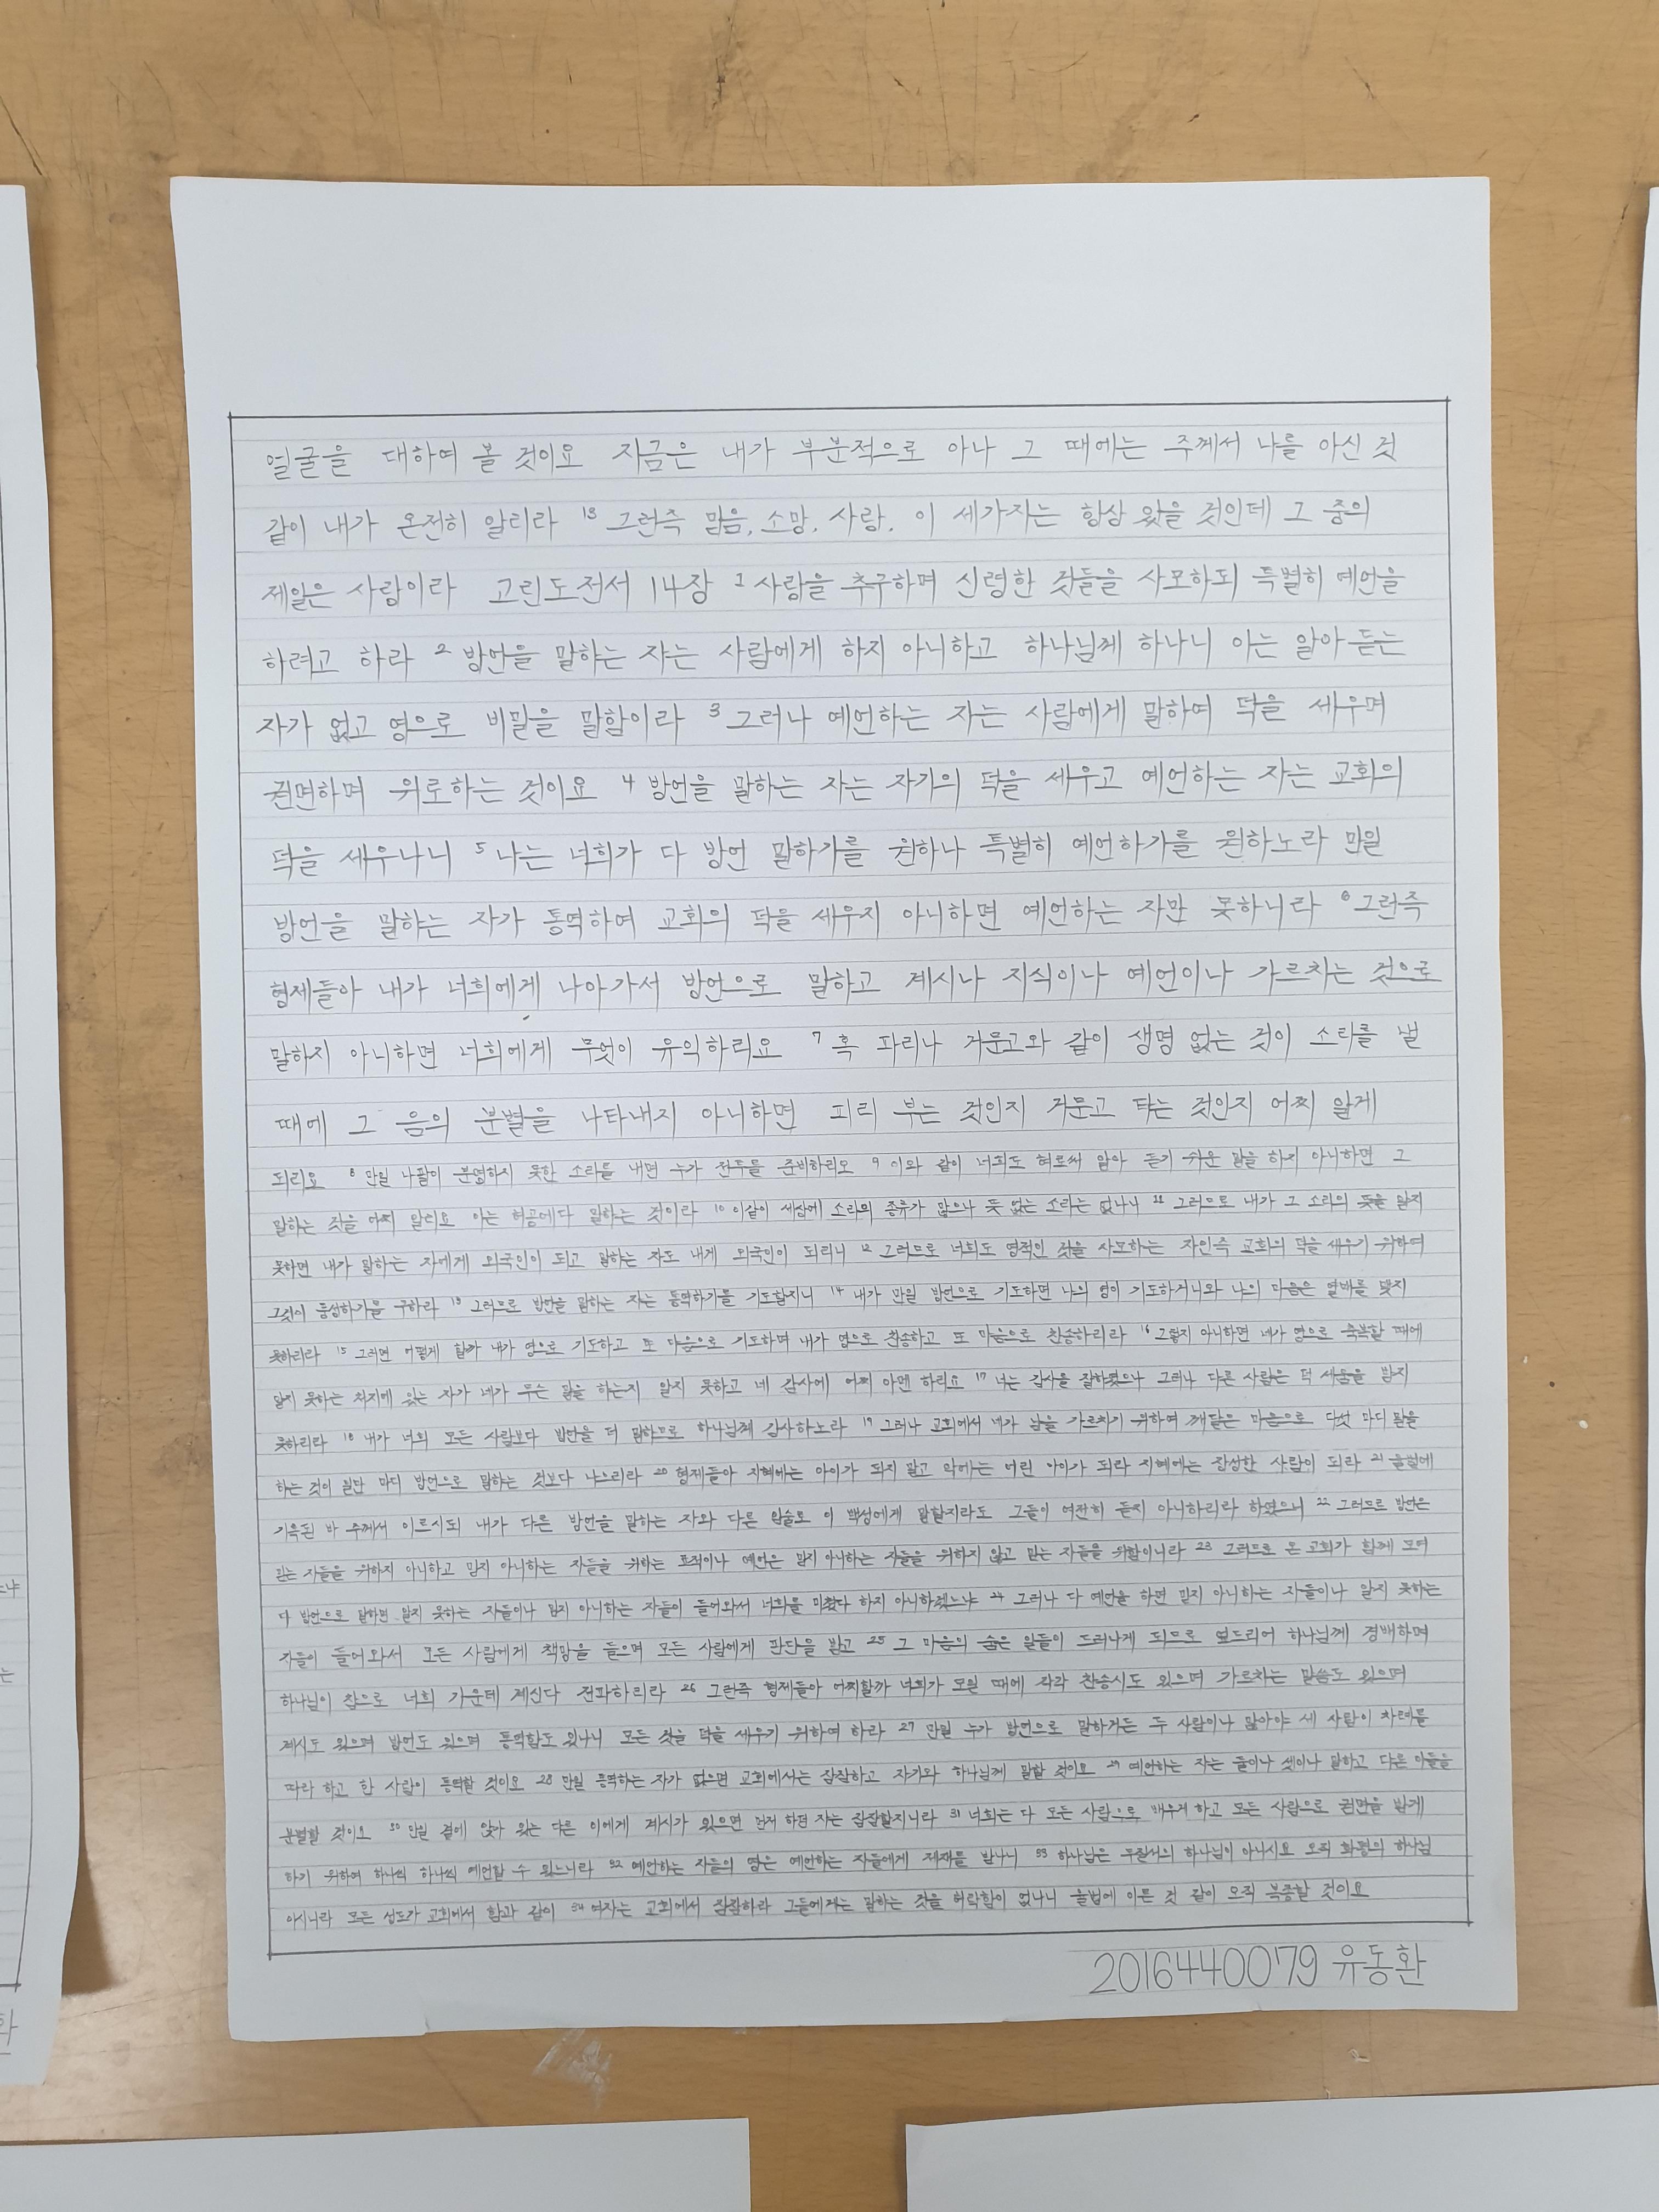 얼굴을 대하여 볼 것이요 지금은 내가 부분적으로 아나 그 때에는 주께서 나를 아신 것
같이 내가 온전히 알리라 13 그런즉 믿음, 소망, 사랑, 이 세가지는 항상 있을 것인데 그 중의
제일은 사랑이라 고린도전서 14장 1 사랑을 추구하며 신령한 것들을 사모하되 특별히 예언을
하려고 하라 2 방언을 말하는 자는 사람에게 하지 아니하고 하나님께 하나니 이는 알아 듣는
자가 없고 영으로 비밀을 말함이라 3 그러나 예언하는 자는 사람에게 말하여 덕을 세우며
권면하며 위로하는 것이요 4 방언을 말하는 자는 자기의 덕을 세우고 예언하는 자는 교회의
덕을 세우나니 5 나는 너희가 다 방언 말하기를 원하나 특별히 예언하기를 원하노라 만일
방언을 말하는 자가 통역하여 교회의 덕을 세우지 아니하면 예언하는 자만 못하니라 6 그런즉
형제들아 내가 너희에게 나아가서 방언으로 말하고 계시나 지식이나 예언이나 가르치는 것으로
말하지 아니하면 너희에게 무엇이 유익하리요 7 혹 피리나 거문고와 같이 생명 없는 것이 소리를 낼
때에 그 음의 분별을 나타내지 아니하면 피리 부는 것인지 거문고 타는 것인지 어찌 알게
되리요 8 만일 나팔이 분명하지 못한 소리를 내면 누가 전투를 준비하리요 9 이와 같이 너희도 혀로써 알아 듣기 쉬운 말을 하지 아니하면 그
말하는 것을 어찌 알리요 이는 허공에다 말하는 것이라 10 이같이 세상에 소리의 종류가 많으나 뜻 없는 소리는 없나니 11 그러므로 내가 그 소리의 뜻을 알지
못하면 내가 말하는 자에게 외국인이 되고 말하는 자도 내게 외국인이 되리니 12 그러므로 너희도 영적인 것을 사모하는 자인즉 교회의 덕을 세우기 위하여
그것이 풍성하기를 구하라 13 그러므로 방언을 말하는 자는 통역하기를 기도할지니 14 내가 만일 방언으로 기도하면 나의 영이 기도하거니와 나의 마음은 열매를 맺지
못하리라 15 그러면 어떻게 할까 내가 영으로 기도하고 또 마음으로 기도하며 내가 영으로 찬송하고 또 마음으로 찬송하리라 16 그렇지 아니하면 네가 영으로 축복할 때에
알지 못하는 처지에 있는 자가 네가 무슨 말을 하는지 알지 못하고 네 감사에 어찌 아멘 하리요 17 너는 감사를 잘하였으나 그러나 다른 사람은 덕 세움을 받지
못하리라 18 내가 너희 모든 사람보다 방언을 더 말하므로 하나님께 감사하노라 19 그러나 교회에서 네가 남을 가르치기 위하여 깨달은 마음으로 다섯 마디 말을
하는 것이 일만 마디 방언으로 말하는 것보다 나으리라 20 형제들아 지혜에는 아이가 되지 말고 악에는 어린 아이가 되라 지혜에는 장성한 사람이 되라 21 율법에
기록된 바 주께서 이르시되 내가 다른 방언을 말하는 자와 다른 입술로 이 백성에게 말할지라도 그들이 여전히 듣지 아니하리라 하였으니 22 그러므로 방언은
믿는 자들을 위하지 아니하고 믿지 아니하는 자들을 위하는 표적이나 예언은 믿지 아니하는 자들을 위하지 않고 믿는 자들을 위함이니라 23 그러므로 온 교회가 함께 모여
다 방언으로 말하면 알지 못하는 자들이나 믿지 아니하는 자들이 들어와서 너희를 미쳤다 하지 아니하겠느냐 24 그러나 다 예언을 하면 믿지 아니하는 자들이나 알지 못하는
자들이 들어와서 모든 사람에게 책망을 들으며 모든 사람에게 판단을 받고 25 그 마음의 숨은 일들이 드러나게 되므로 엎드리어 하나님께 경배하며
하나님이 참으로 너희 가운데 계신다 전파하리라 26 그런즉 형제들아 어찌할까 너희가 모일 때에 각각 찬송시도 있으며 가르치는 말씀도 있으며
계시도 있으며 방언도 있으며 통역함도 있나니 모든 것을 덕을 세우기 위하여 하라 27 만일 누가 방언으로 말하거든 두 사람이나 많아야 세 사람이 차례를
따라 하고 한 사람이 통역할 것이요 28 만일 통역하는 자가 없으면 교회에서는 잠잠하고 자기와 하나님께 말할 것이요 29 예언하는 자는 둘이나 셋이나 말하고 다른 이들을
분별할 것이요 30 만일 곁에 앉아 있는 다른 이에게 계시가 있으면 먼저 하던 자는 잠잠할지니라 31 너희는 다 모든 사람으로 배우게 하고 모든 사람으로 권면을 받게
하기 위하여 하나씩 하나씩 예언할 수 있느니라 32 예언하는 자들의 영은 예언하는 자들에게 제재를 받나니 33 하나님은 무질서의 하나님이 아니시요 오직 화평의 하나님
이시니라 모든 성도가 교회에서 함과 같이 34 여자는 교회에서 잠잠하라 그들에게는 말하는 것을 허락함이 없나니 율법에 이른 것 같이 오직 복종할 것이요
2016440079 유동환